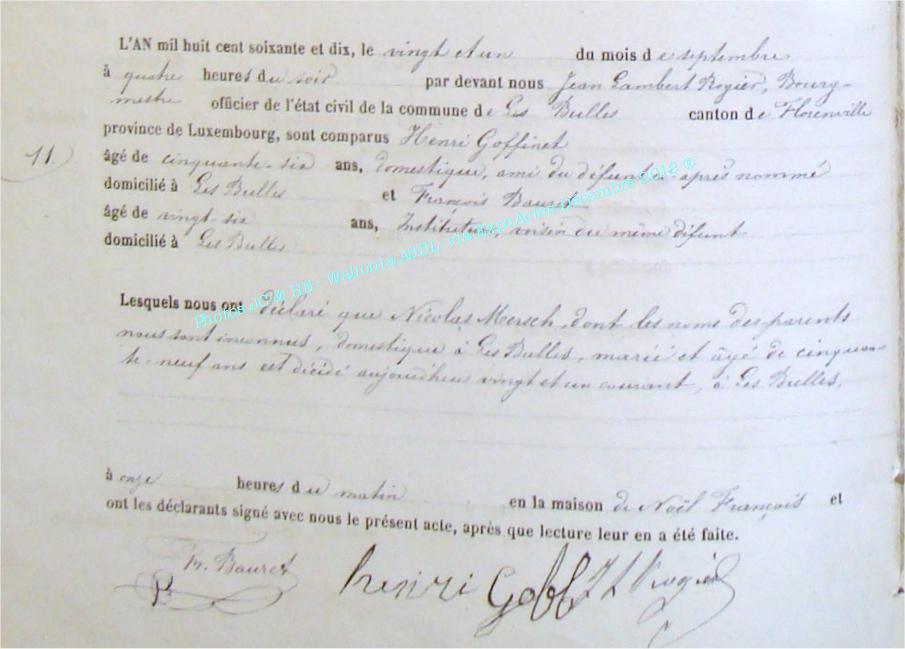 L'AN mil huit cent soixante et dix, le vingt et un du mois de septembre
à quatre heures du soir par devant nous Jean Lambert Rogier, Bourg-
mestre officier de l'état civil de la commune de Les Bulles canton de Florenville
province de Luxembourg, sont comparus Henri Goffinet
11.
âgé de cinquante-six ans, domestique, ami du défunt ci-après nommé
domicilié à Les Bulles et François Bauret
âgé de vingt-six ans, Instituteur, voisin du même défunt
domicilié à Les Bulles
Photos JC & HB - Wallonia ASBL, via ExpoActes Décembre 2012 ®
Lesquels nous ont déclaré que Nicolas Mersch, dont les noms des parents
nous sont inconnus, domestique à Les Bulles, marié et âgé de cinquan-
te-neuf ans est décédé aujourd'hui vingt et un courant, à Les Bulles,
à onze heures du matin en la maison de Noël François et
ont les déclarants signé avec nous le présent acte, après que lecture leur en a été faite.
Fr. Bauret henri Goff J L Rogier